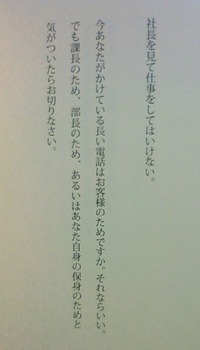 社長を見て仕事をしてはいけない。
今あなたがかけている長い電話はお客様のためですか。それならいい。
でも課長のため、部長のため、あるいはあなた自身の保身のためと
気がついたらお切りなさい。